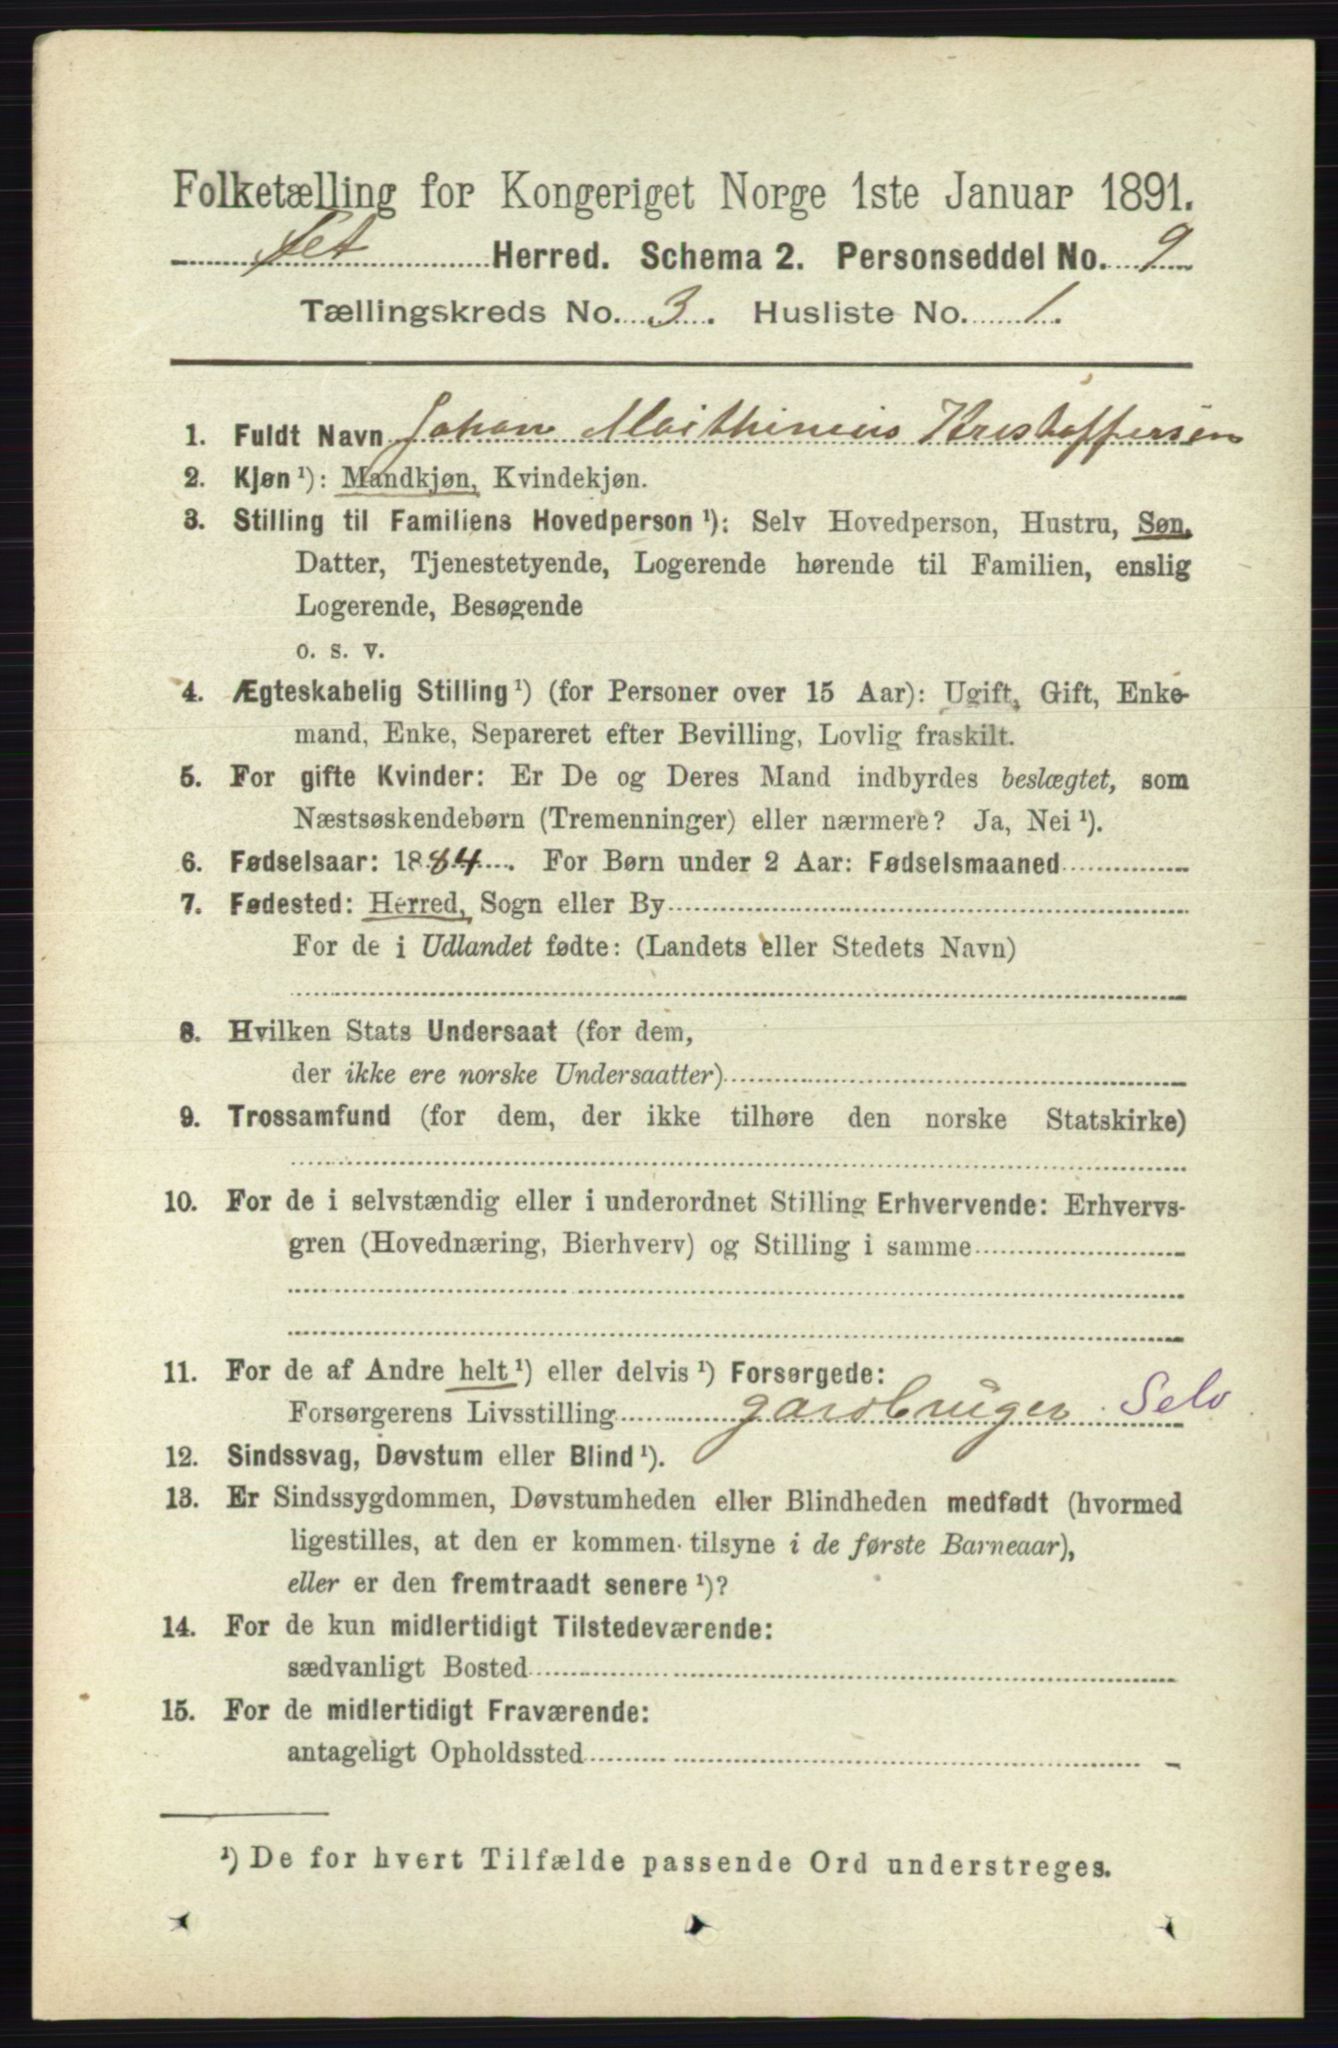 Folketælling for Kongeriget Norge 1ste Januar 1891.
Fet Herred. Schema 2. Personseddel No. 9
Tællingskreds No. 3. Husliste No. 1.
1. Fuldt Navn Johan Mathinius Kristoffersen
2. Kjøn ¹): Mandkjøn, Kvindekjøn.
3. Stilling til Familiens Hovedperson ¹): Selv Hovedperson, Hustru, Søn,
Datter, Tjenestetyende, Logerende hørende til Familien, enslig
Logerende, Besøgende
o. s. v.
4. Ægteskabelig Stilling ¹) (for Personer over 15 Aar): Ugift, Gift, Enke-
mand, Enke, Separeret efter Bevilling, Lovlig fraskilt.
5. For gifte Kvinder: Er De og Deres Mand indbyrdes beslægtet, som
Næstsøskendebørn (Tremenninger) eller nærmere? Ja, Nei ¹).
6. Fødselsaar: 1884. For Børn under 2 Aar: Fødselsmaaned
7. Fødested: Herred, Sogn eller By
For de i Udlandet fødte: (Landets eller Stedets Navn)
8. Hvilken Stats Undersaat (for dem,
der ikke ere norske Undersaatter)
9. Trossamfund (for dem, der ikke tilhøre den norske Statskirke)
10. For de i selvstændig eller i underordnet Stilling Erhvervende: Erhvervs-
gren (Hovednæring, Bierhverv) og Stilling i samme
11. For de af Andre helt ¹) eller delvis ¹) Forsørgede:
Forsørgerens Livsstilling gardbruger Selv
12. Sindssvag, Døvstum eller Blind ¹).
13. Er Sindssygdommen, Døvstumheden eller Blindheden medfødt (hvormed
ligestilles, at den er kommen tilsyne i de første Barneaar),
eller er den fremtraadt senere ¹)?
14. For de kun midlertidigt Tilstedeværende:
sædvanligt Bosted
15. For de midlertidigt Fraværende:
antageligt Opholdssted
¹) De for hvert Tilfælde passende Ord understreges.